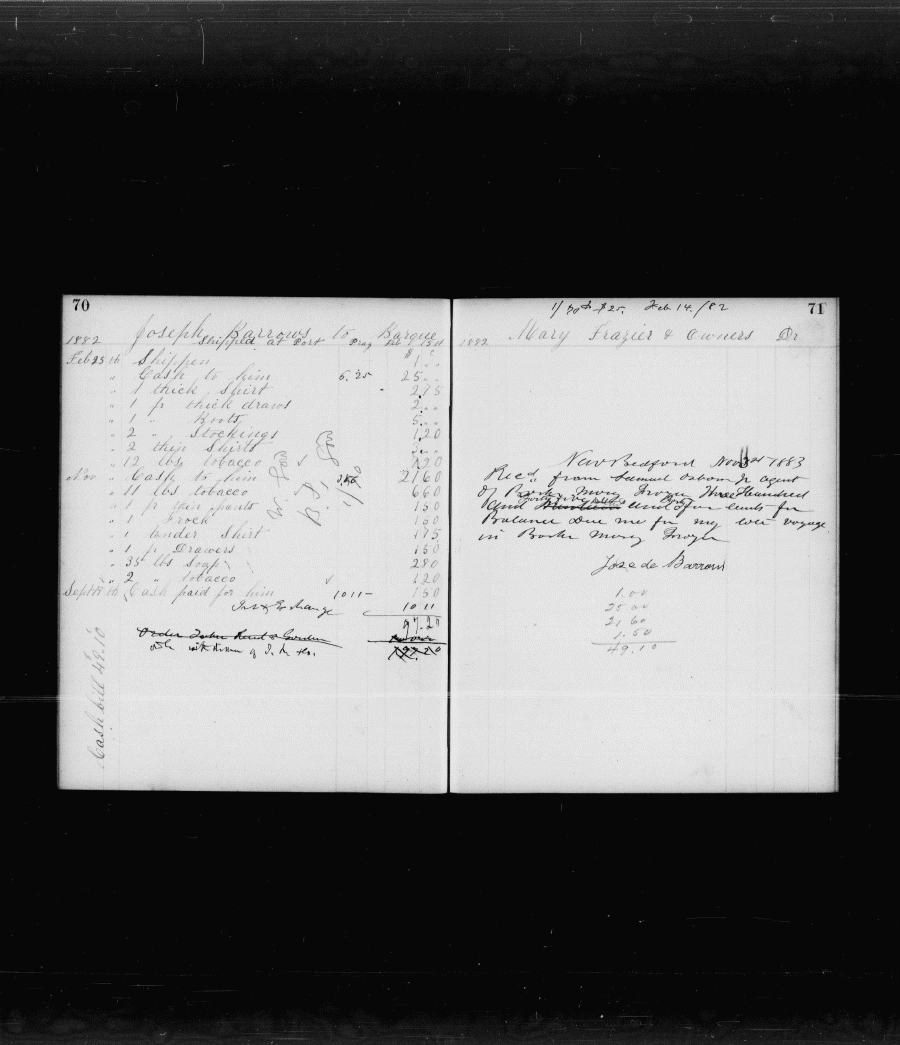 70
Joseph Barrows to Barque
1882 Shipped at Port
Feb 25th Shippen 1
" Cash to him 6.25 25
" 1 thick Shirt 2 75
" 1 pr thick draws 2
" 1 " Boots 5
" 2 " Stockings 1 20
" 2 thin Shirts
" 12 lbs tobacco 7 20
Nov " Cash to him 21 60
" 11 lbs tobacco 6 60
" 1 pr thin pants 1 50
" 1 Frock 1 50
" 1 under Shirt 1 75
" 1 pr Drawers 1 50
" 35 lbs Soap 2 80
" 2 " tobacco 1 20
Sept th Cash paid for him 10 11 1 50
Ins & Exchange 10 11
97.20
Cash bill 49.10
1/70th $25. Feb 14./82
71
1882 Mary Frazier & Owners Dr
New Bedford Nov 3rd 1883
Recd from Samuel Osborn Jr agent
of Bark Mary Frazer Three Hundred
and and four cents for
Balance Due me for my late voyage
in Bark Mary Frazer
Joze de Barrows
1.00
25 00
21 60
1.50
49.10